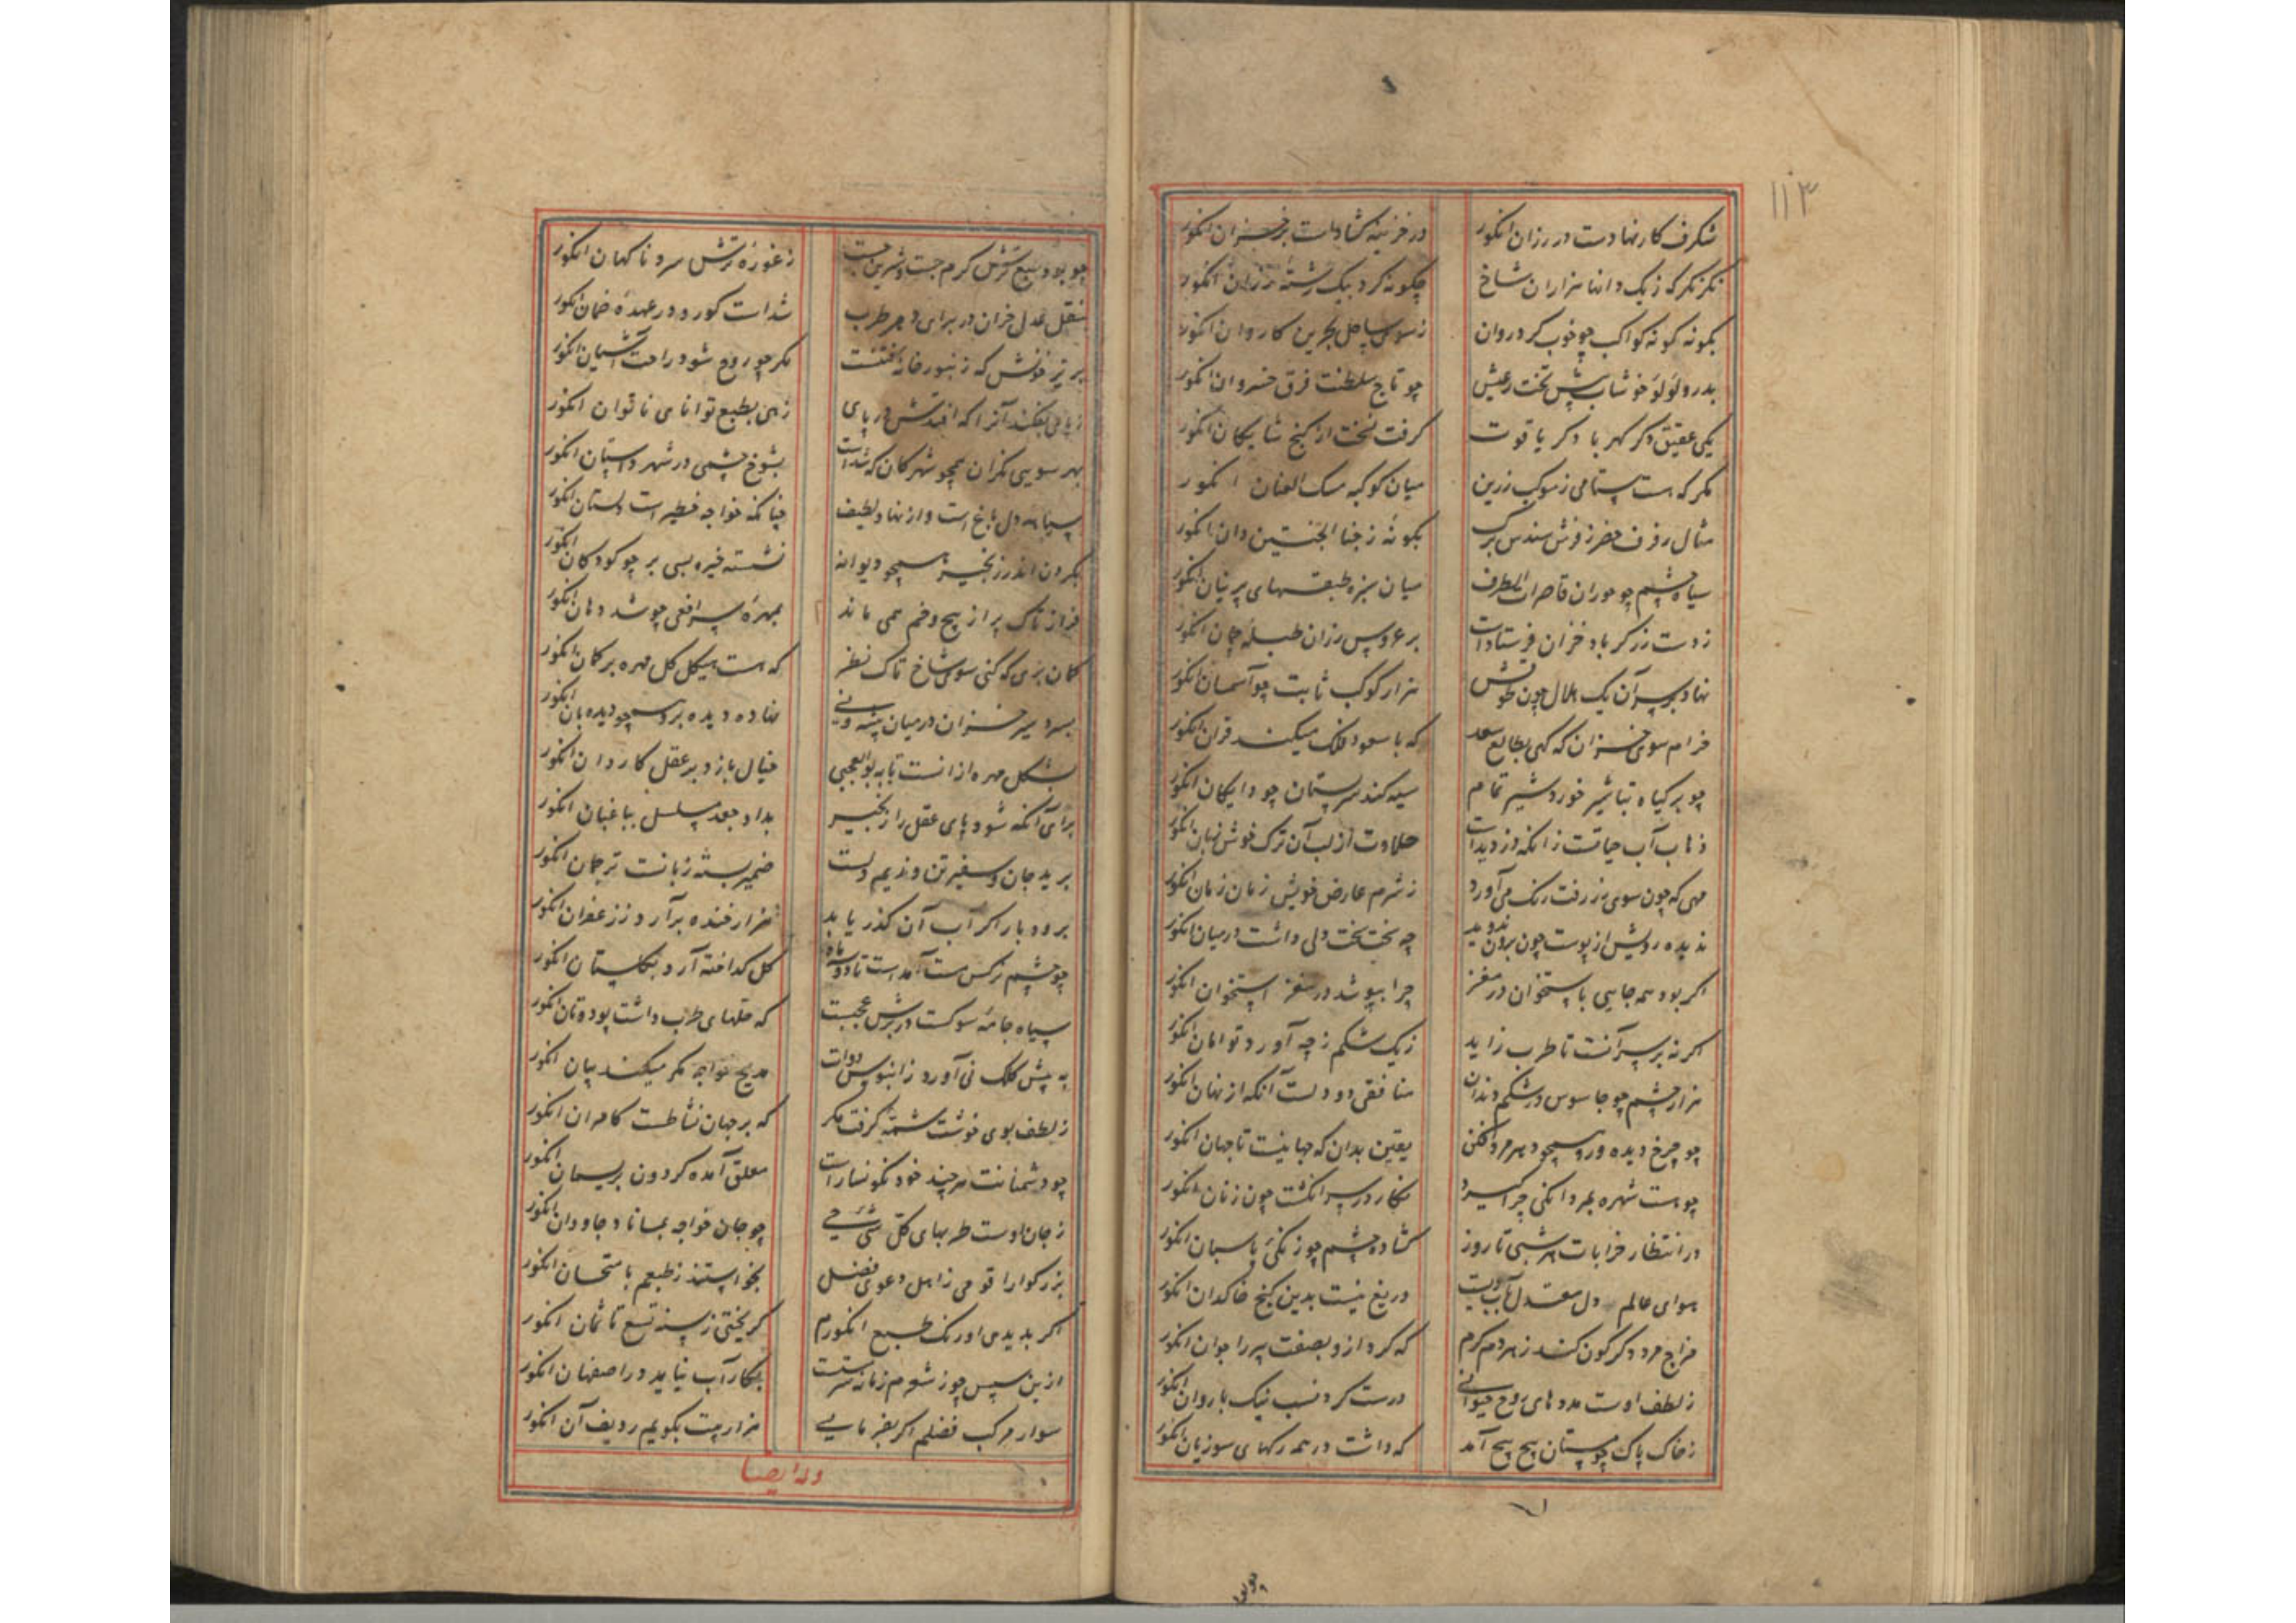 ۱۱۳
شکرف کار نهادست در رزان انکور
در خزینه کشادست بر خزان انکور
نکر نکر که ز یک دانها هزاران شاخ
چکونه کرد بیک رشته رزان انکور
بکونه کونه کواکب چو خوب کرد روان
ز سوی ساحل بحرین کاروان انکور
بدر و لولو خوشاب پیش تخت رعیش
چو تاج سلطنت فرق خسروان انکور
یکی عقیق دکر کهربا دکر یاقوت
کرفت نخت از کنج شایکان انکور
مکر که هست ستامی ز موکب زرین
میان کوکبه مسک العنان انکور
مثال رفرف خضر ز فرش سندس برک
بکونه ز جنا الجنتین دان انکور
سیاه چشم چو حوران قاصرات الطرف
میان سبزه طبقهای پرنیان انکور
ز دست زرکر باد خزان فرستادست
بر عروس رزان طبله جمان انکور
نهاد بر سر آن یک هلال چون طوقش
هزار کوکب ثابت چو آسمان انکور
خرام سوی خزان که کهی بطالع سعد
که با سعود فلک میکند قران انکور
چو بر کیاه تباشیر خورد شیر تمام
سیه کند سر پستان چو دایکان انکور
ذهاب آب حیاتست زانکه دزدیدست
حلاوت از لب آن ترک خوش زبان انکور
مهی که چون سوی رز رفت رنک می آورد
ز شرم عارض خویش زمان زمان انکور
ندیده رویش از پوست چون برون ندوید
چه سخت سخت دلی داشت در میان انکور
اکر بود همه جایی باستخوان در مغز
چرا بپوشد در مغز استخوان انکور
اکر نه بر سر آنست تا طرب زاید
ز یک شکم ز چه آورد توامان انکور
هزار چشم چو جاسوس در شکم دندان
منافقی دو دلست آنکه از نهان انکور
چو چرخ دیده ور و همچو دهر مرد افکن
یقین بدان که جهانیست تا جهان انکور
چو هست شهره بمردانکی چرا کیرد
نکار در سر انکشت چون زنان انکور
در انتظار خرابات هر شبی تا روز
کشاده چشم چو زنکی پاسبان انکور
هوای عالم دل معتدل باب ویست
دریغ نیست بدین کنج خاکدان انکور
مزاج مرد دکرکون کند ز هر دم کرم
که کرد از و بصفت پیر را جوان انکور
ز لطف اوست مددهای روح حیوانی
درست کرد نسب نیک با روان انکور
ز خاک پاک چو مستان پیچ پیچ آمد
که داشت در همه رکهای سوزیان انکور
چو بود سیع ترش کرم جست و شیرین جست
ز غوره ترش سرد ناکهان انکور
بنقل عدل خزان در برای دهر طرب
شدست کورد در عهده ضمان انکور
پر تیر خونش که زنبور خانه کفتست
مکر چو روح شود راحت آشیان انکور
ز پای بفکند آنرا که افتدش در پای
زهی بطبع توانای ناتوان انکور
بهر سویی نکران همچو شهرکان که شدست
بشوخ چشمی در شهر داستان انکور
سیاه دل باغ است و از نهاد لطیف
چنانکه خواجه خطیر است دلستان انکور
بکردن اندر زنجیر همچو دیوانه
نشسته خیره بسی بر چو کودکان انکور
فراز تاک پر از پیچ و خم همی ماند
بمهره سر افعی چو شد دهان انکور
کمان بری که کنی سوی شاخ تاک نظر
که هست هیکل کل مهره بر کمان انکور
بسردسیر خزان در میان پنبه و نی
نهاده دیده بر و همچو دیده بان انکور
بشکل مهره از آنست تا به بوالعجبی
خیال بازد بر عقل کاردان انکور
برای آنکه شود پای عقل را زنجیر
بداد جعد مسلسل بباغبان انکور
برید جان و سفیر تن و ندیم دلست
ضمیر بسته زبانست ترجمان انکور
برود بار اکر آب آن کذر یابد
هزار خنده برآرد ز زعفران انکور
چو چشم نرکس مست آمدست تا دو سه ماه
کل کداخته آرد بکلستان انکور
سیاه جامه سوکست در برش عجبست
که حلهای طرب داشت پود و تان انکور
به پیش کلک نی آورد ز آبنوس دوات
مدیح خواجه مکر میکند بیان انکور
ز لطف بوی خوشت شمه کرفت مکر
که بر جهان نشاطست کامران انکور
چو دشمنانت هر چند خود نکونسارست
معلق آمده کردون بریسمان انکور
ز جان اوست طربهای کل شی حی
چو جان خواجه بماناد جاودان انکور
بزرکوارا قومی ز اهل دعوی فضل
بخواستند ز طبعم بامتحان انکور
اکر بدیدی اورنک طبع انکورم
کریختی ز سنه تسع تا ثمان انکور
ازین سپس چو ز شوم زمانه سرمست
بکار آب نیاید در اصفهان انکور
سوار مرکب فضلم اکر بفرمایی
هزار بیت بکویم ردیف آن انکور
وله ایضا